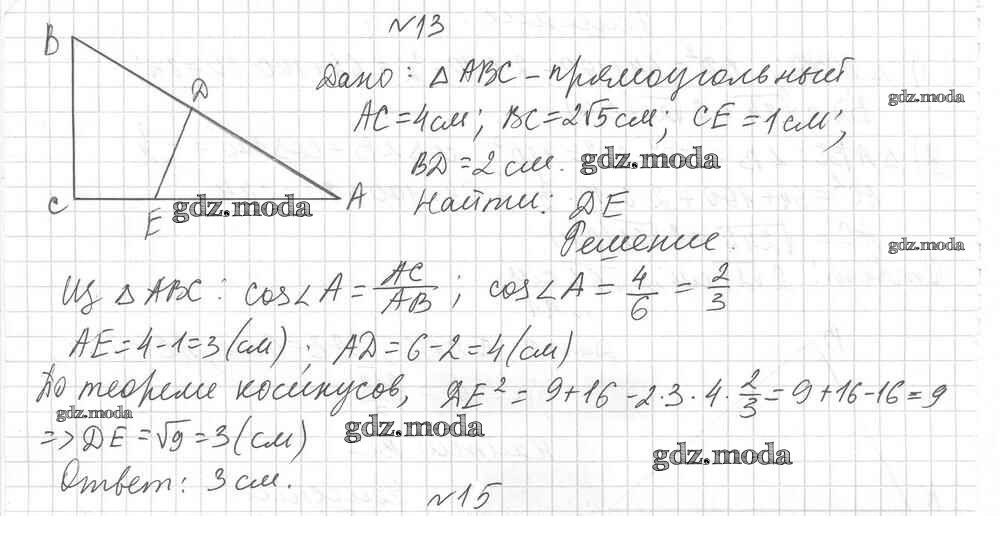 №13
B
D
C
E
A
Дано: △ABC – прямоугольный
AC = 4 см; BC = 2√5 см; CE = 1 см;
BD = 2 см.
Найти: DE
Решение.
Из △ABC: cos∠A = AC/AB; cos∠A = 4/6 = 2/3
AE = 4 – 1 = 3 (см); AD = 6 – 2 = 4 (см)
По теореме косинусов, DE² = 9 + 16 – 2·3·4·2/3 = 9 + 16 – 16 = 9
=> DE = √9 = 3 (см)
Ответ: 3 см.
№15
gdz.moda
gdz.moda
gdz.moda
gdz.moda
gdz.moda
gdz.moda
gdz.moda